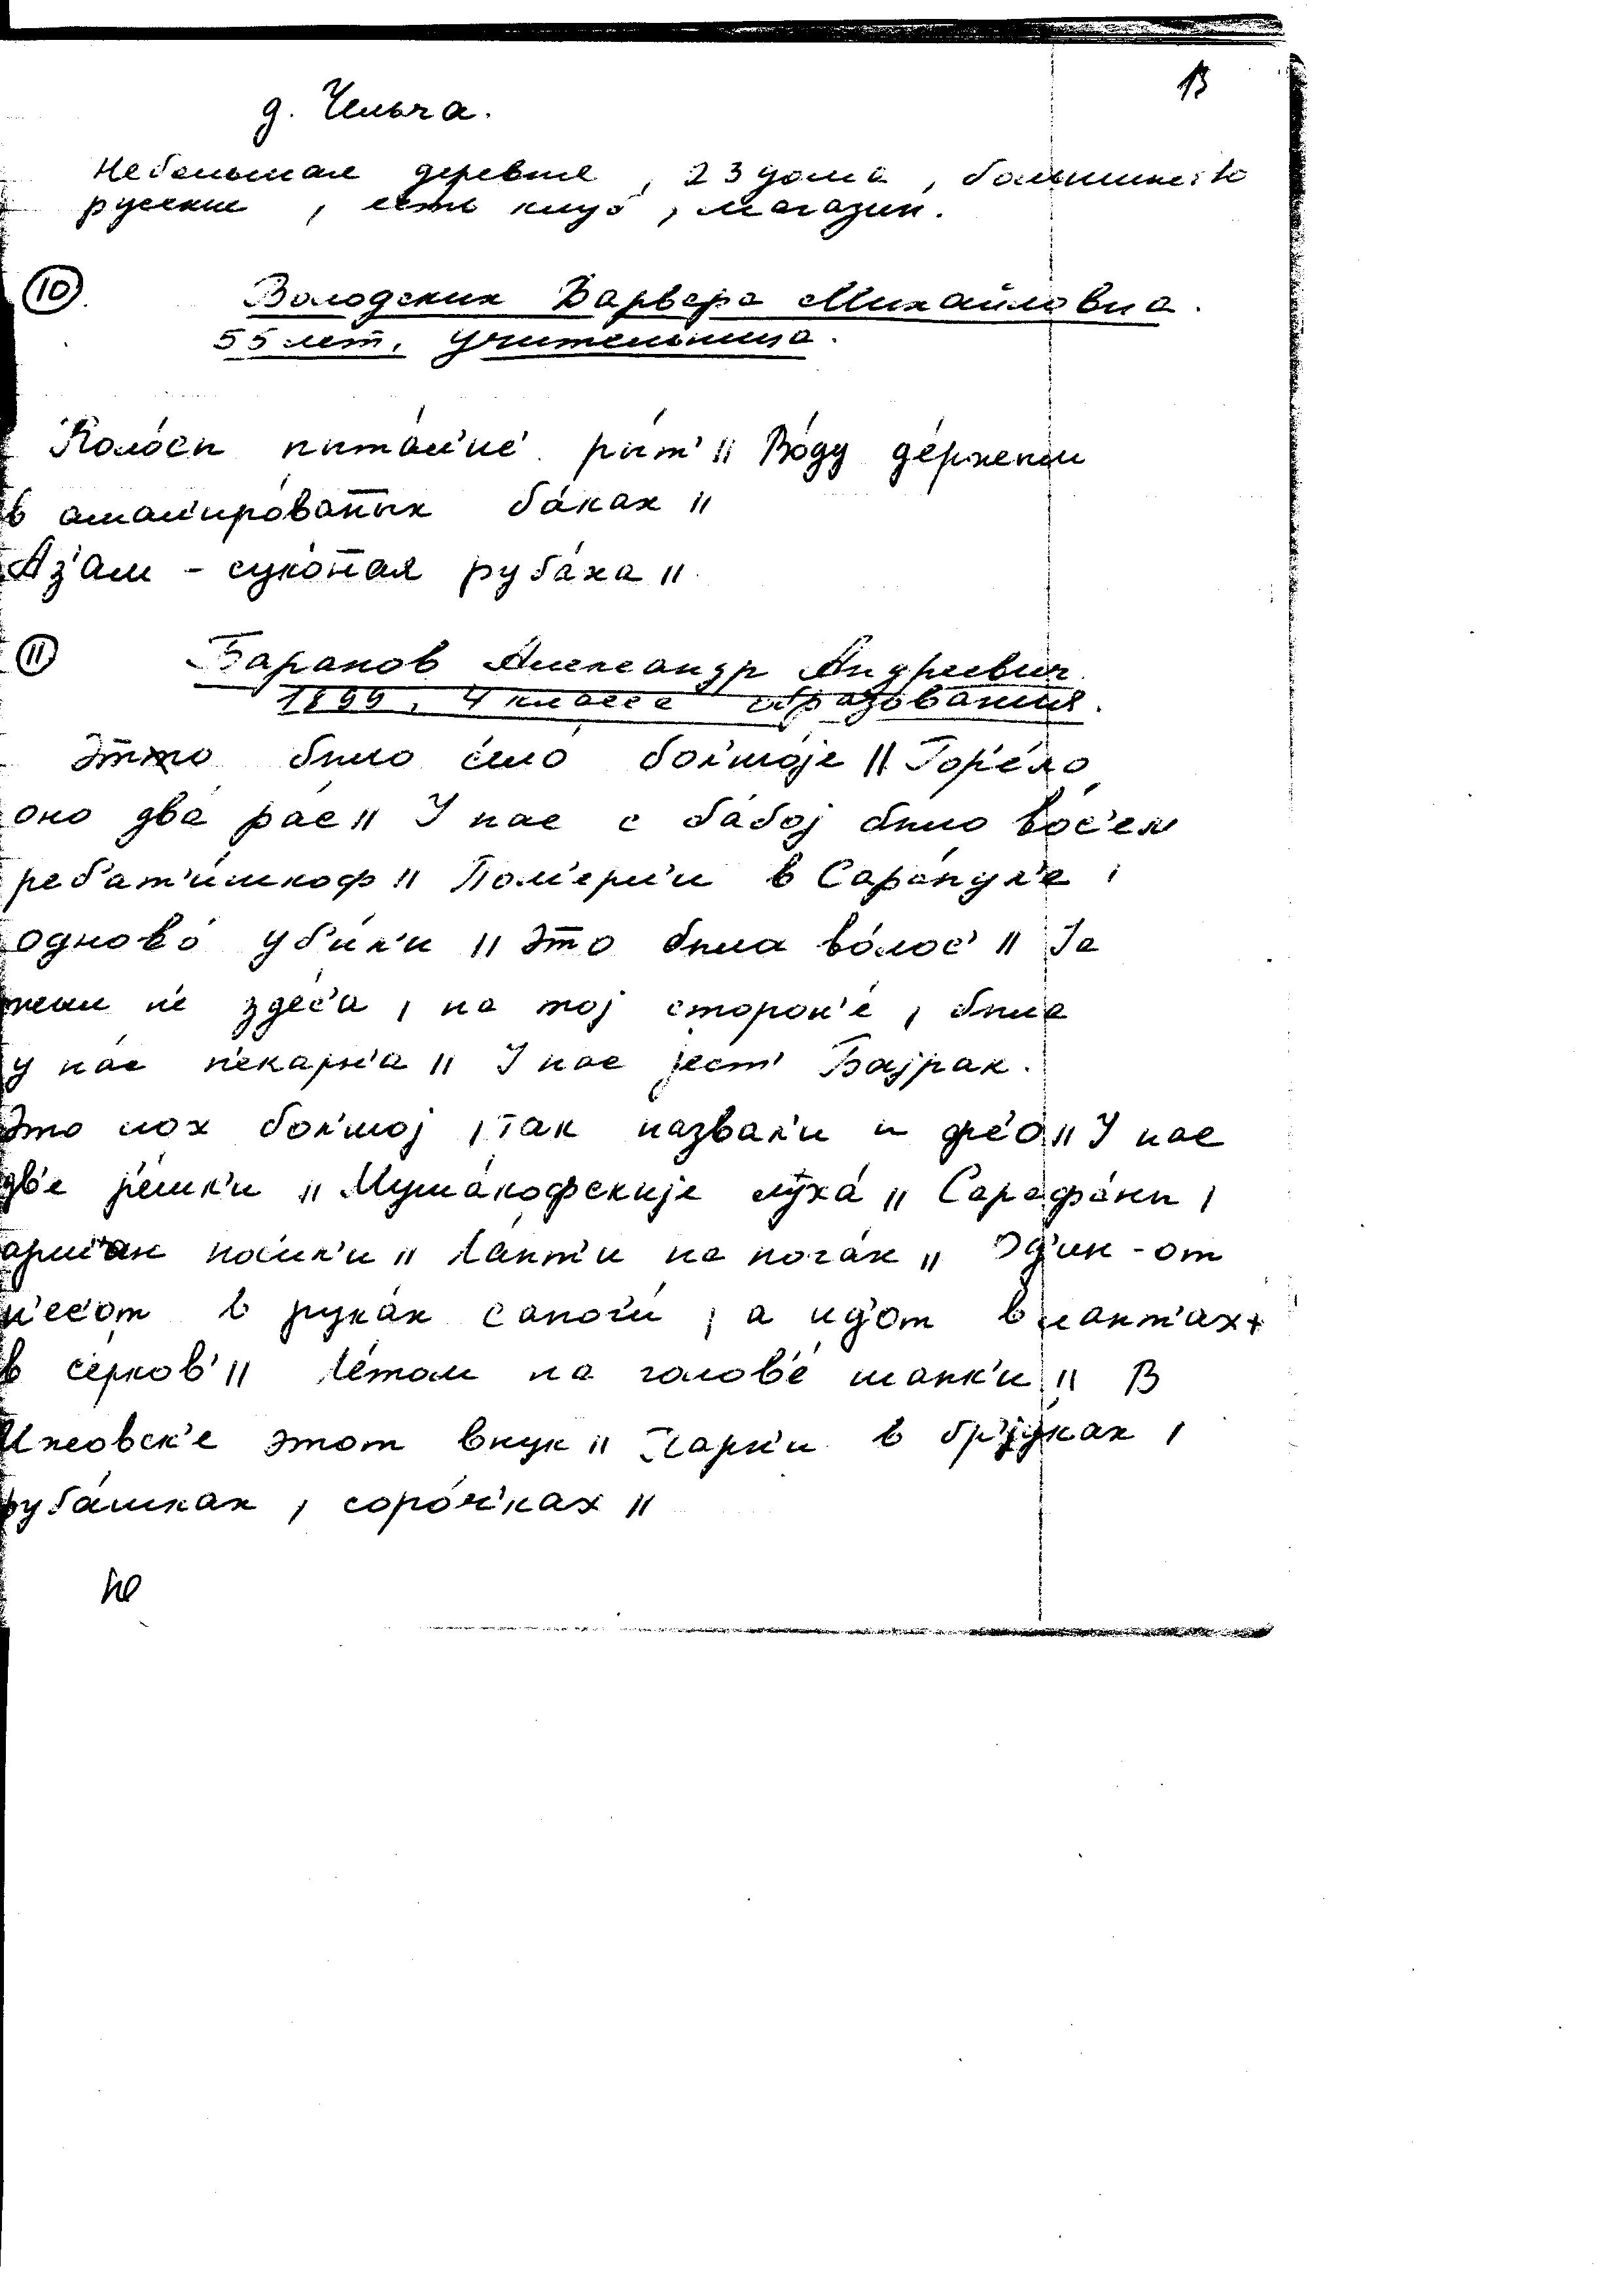 13
д. Чельча.
Небольшая деревня, 23 дома, большинство
русские, есть клуб, магазин.
10
Володских Варвара Михайловна.
55 лет, учительница.
рыт' || Во́ду де́ржели
в амал'иро́ваных ба́ках ||
Аз'ам - суко́ная руба́ха ||
11
Баранов Александр Андреевич
1899, 4 класса образования.
Это было с'ело́ бол'шо́је || Гор'е́ло
оно два́ ра́с || У нас с ба́бој было во́с'ем
реб'ат'и́шкоф || Пом'ерл'и в Сара́пул'е,
одново́ уб'и́л'и || Это была во́лос' || Ја
жыл н'е зд'е́с'а, на тој сторон'е́, была
у на́с п'ека́рн'а || У нас јест' Бајрак.
Это лох бол'шој, так назвал'и
дв'е р'е́шк'и || Мушако́фскије луха́ || Сарафа́ны,
арм'ак нос'ил'и || Ла́пт'и на нога́х || Од'ин-от
н'ес'от в рука́х сапог'и́, а ид'от в лапт'ах
в се́рков' || Ле́том на голов'е́ шапк'и || В
Ижовск'е этот внук || Парн'и в бр'у́ках,
руба́шках, соро́ч'ках ||